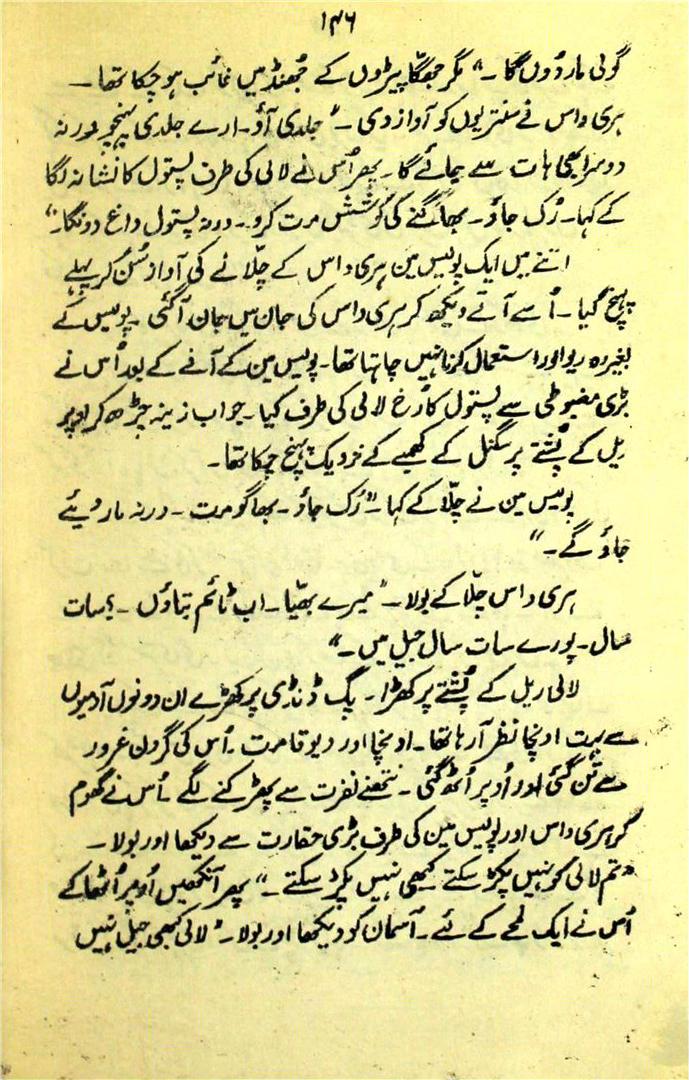 ۱۴۶
گولی مار دوں گا۔" مگر جھگّا پیڑوں کے جُھنڈ میں غائب ہو چکا تھا۔
ہری داس نے سنتریوں کو آواز دی۔ "جلدی آؤ۔ ارے جلدی پہنچو ورنہ
دوسرا بھی ہات سے جائے گا۔ پھر اُس نے لالی کی طرف پستول کا نشانہ لگا
کے کہا۔ رُک جاؤ۔ بھاگنے کی کوشش مرت کرو۔ ورنہ پستول داغ دونگا۔"
اتنے میں ایک پولیس مین ہری داس کے چلّانے کی آواز سُن کر پہلے
پہنچ گیا۔ اُسے آتے دیکھ کر ہری داس کی جان میں جان آ گئی۔ پولیس کے
بغیر وہ ریوالور استعمال کرنا نہیں چاہتا تھا۔ پولیس مین کے آنے کے بعد اُس نے
بڑی مضبوطی سے پستول کا رُخ لالی کی طرف کیا۔ جو اب زینہ چڑھ کر اوپر
ریل کے پُشتے پر سگنل کے کھمبے کے نزدیک پہنچ چکا تھا۔
پولیس مین نے چلّا کے کہا۔ "رُک جاؤ۔ بھاگو مت۔ ورنہ مار دیئے
جاؤ گے۔"
ہری داس چلّا کے بولا۔ "میرے بھیّا۔ اب ٹائم بتاؤں۔ ؟ سات
سال۔ پورے سات سال جیل میں۔"
لالی ریل کے پُشتے پر کھڑا۔ پگ ڈنڈی پر کھڑے ان دونوں آدمیوں
سے بہت اونچا نظر آ رہا تھا۔ اونچا اور دیو قامت۔ اُس کی گردن غرور
سے تن گئی اور اُوپر اُٹھ گئی۔ نتھنے نفرت سے پھڑکنے لگے۔ اُس نے گھوم
کر ہری داس اور پولیس مین کی طرف بڑی حقارت سے دیکھا اور بولا۔
"تم لالی کو نہیں پکڑ سکتے کبھی نہیں پکڑ سکتے۔" پھر آنکھیں اُوپر اُٹھا کے
اُس نے ایک لمحے کے لئے۔ آسمان کو دیکھا اور بولا۔ "لالی کبھی جیل نہیں